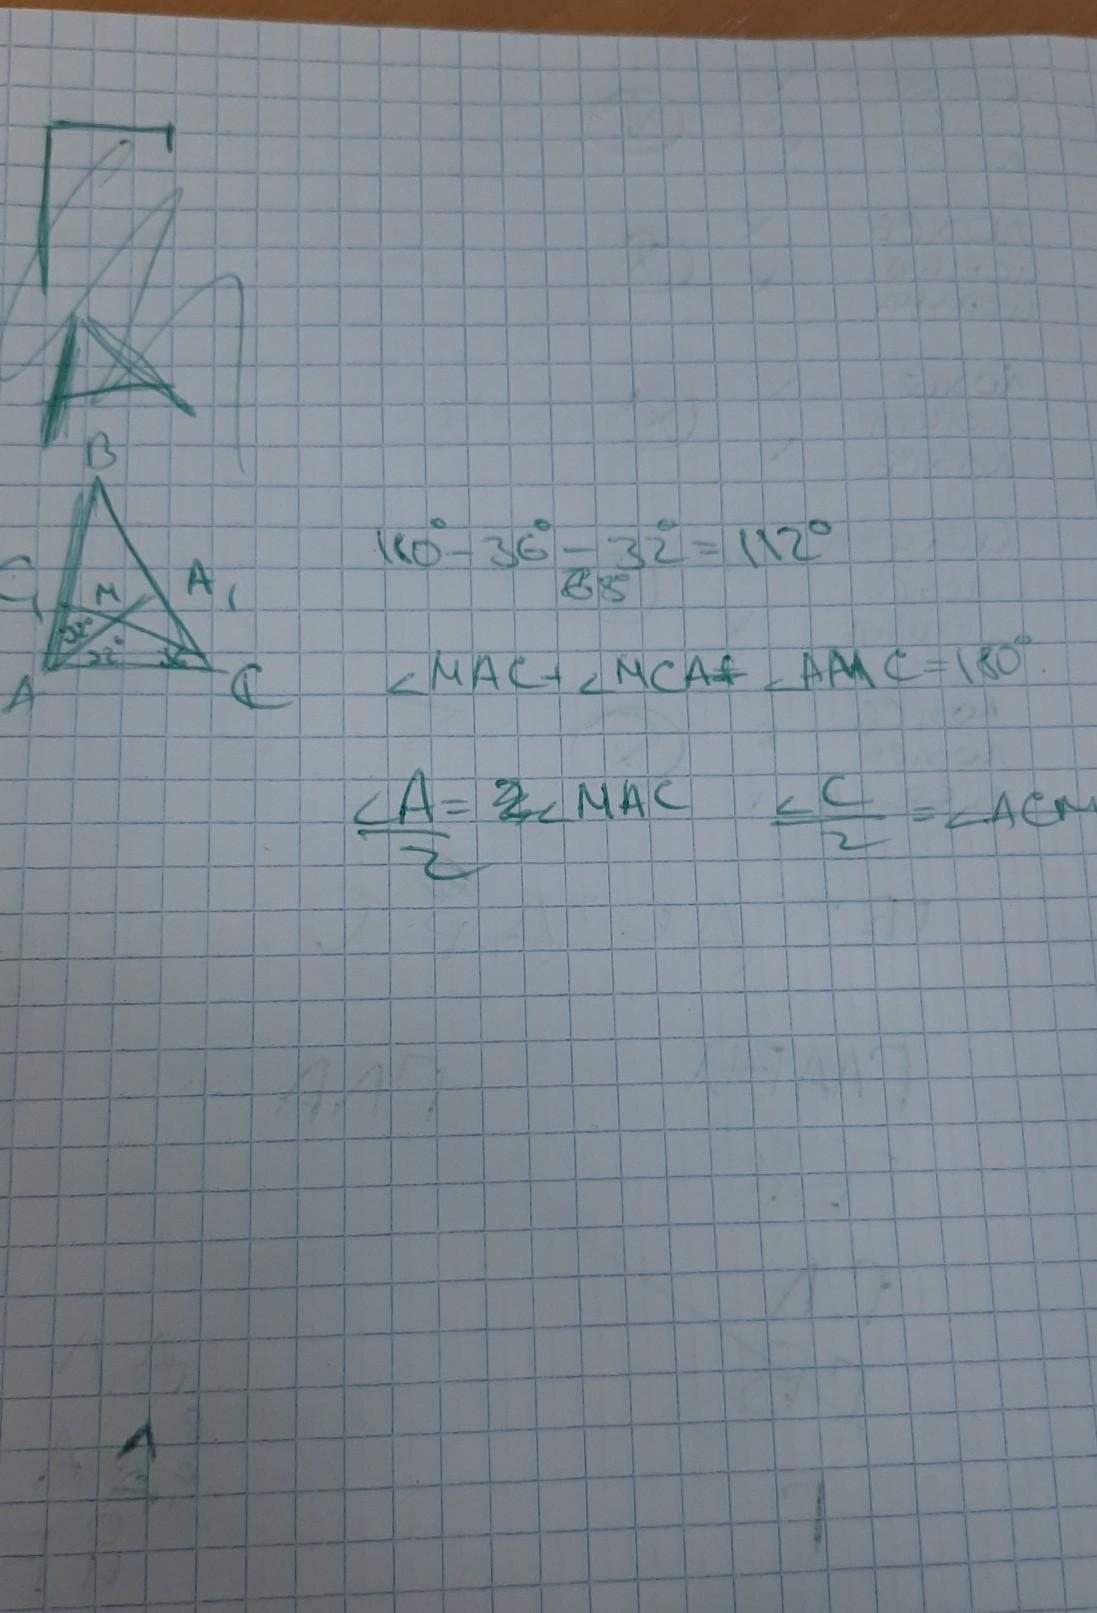 B
C₁ M A₁
32°
32° 36
A C
180° - 36° - 32° = 112°
68
∠MAC + ∠MCA + ∠AMC = 180°.
∠A/2 = ∠MAC ∠C/2 = ∠ACM